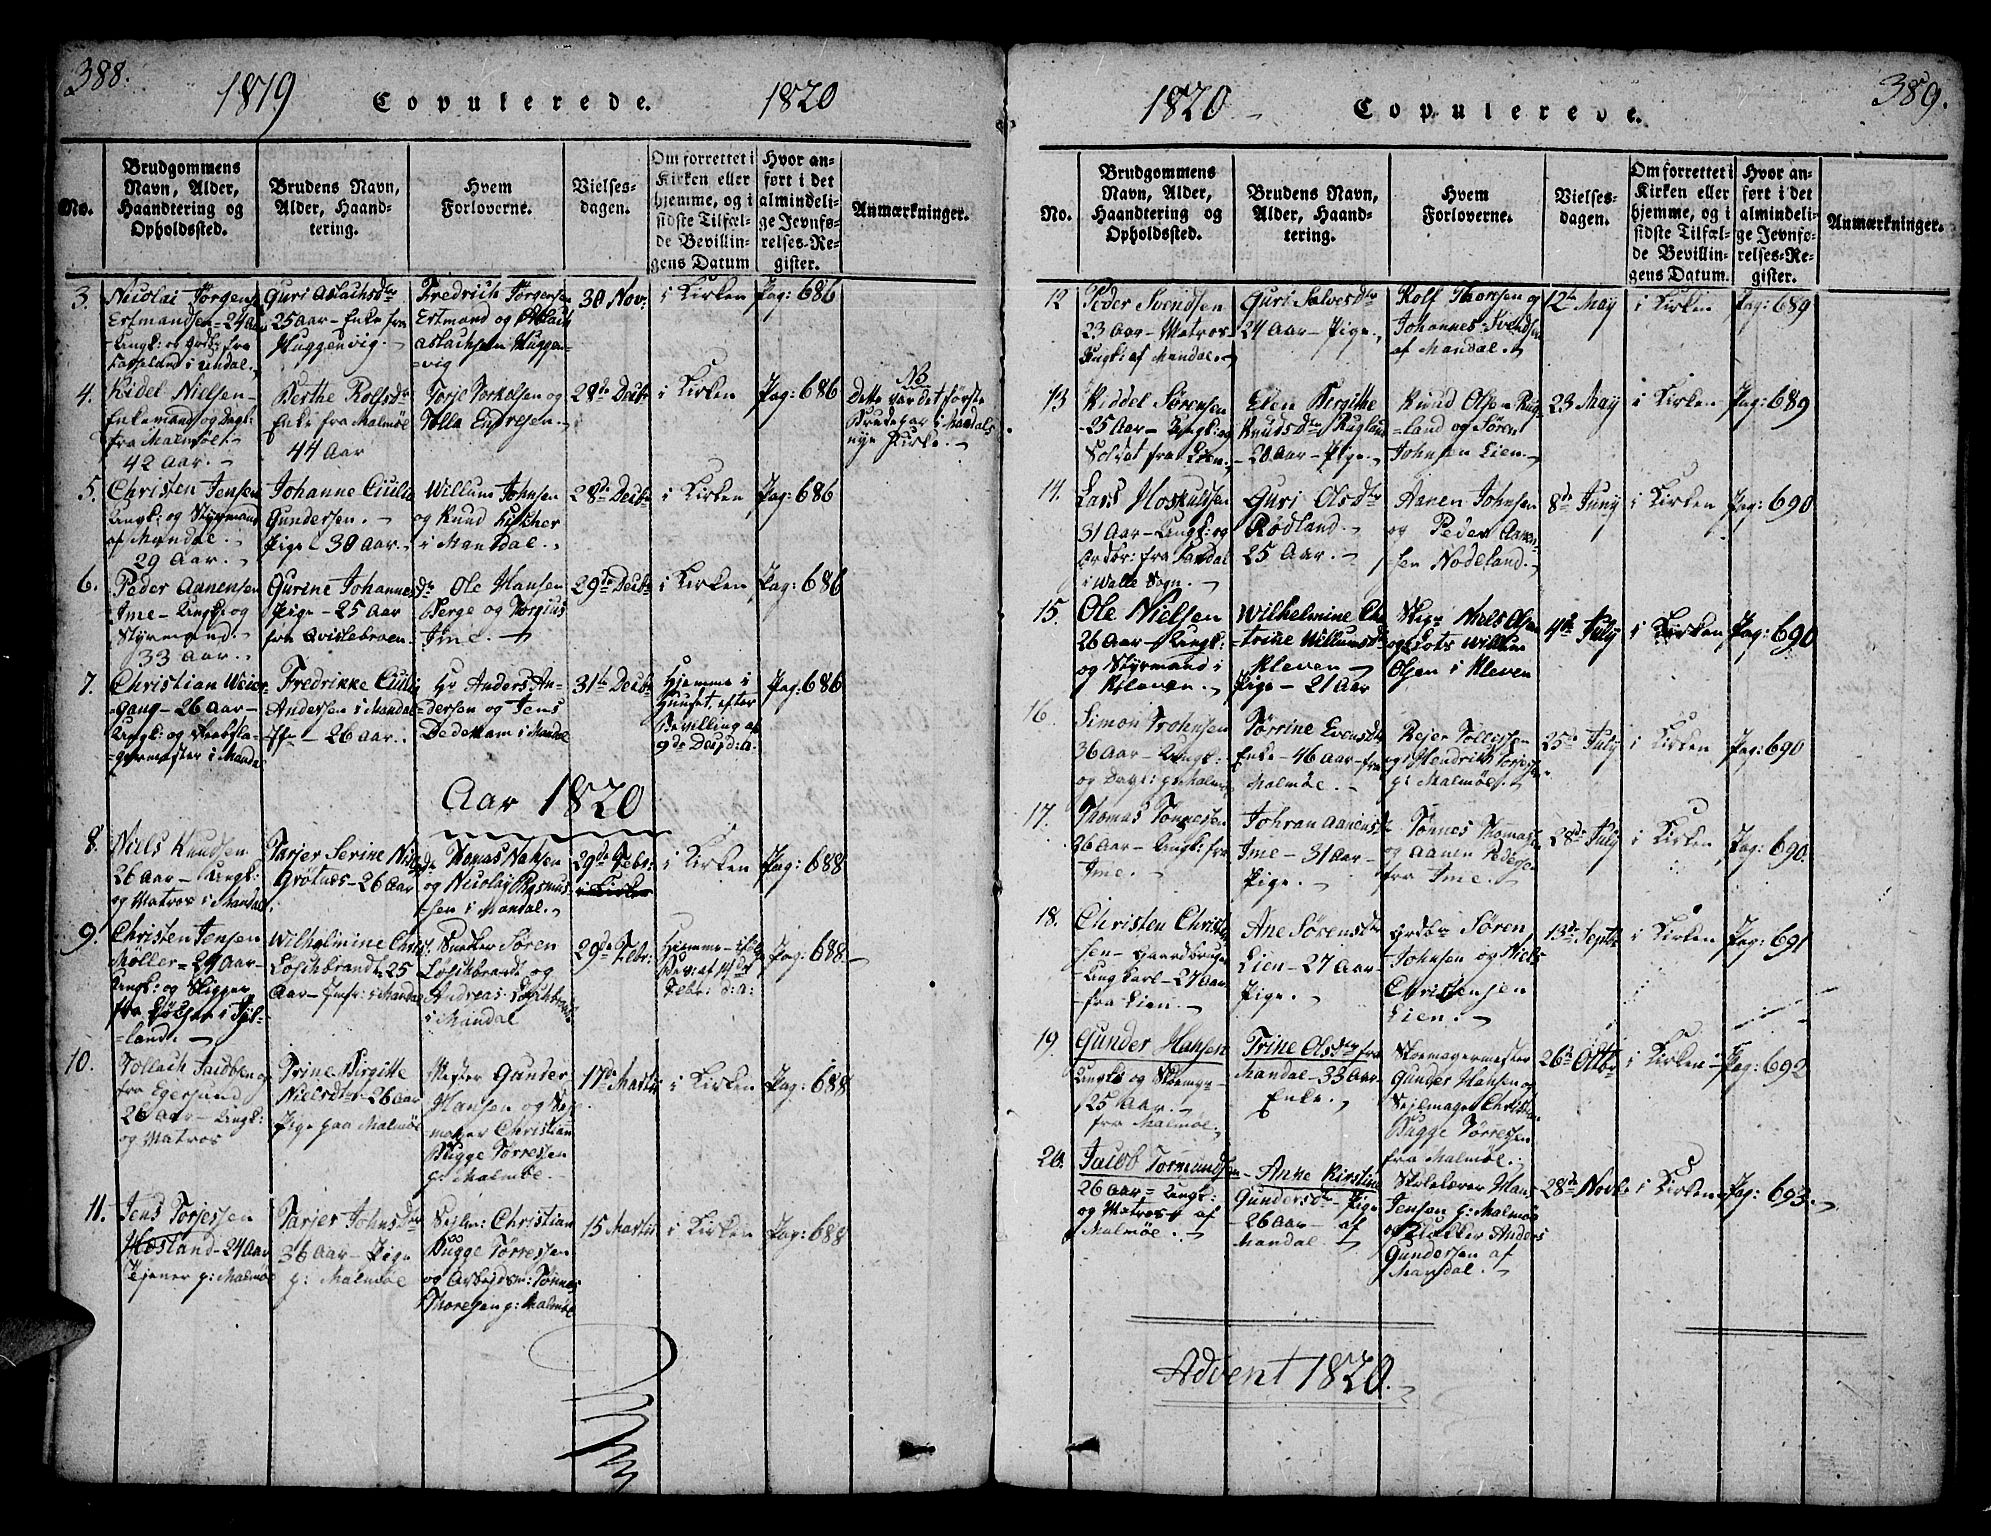 388.
1819 Copulerede. 1820
No.
Brudgommens
Navn, Alder,
Haandtering og
Opholdssted.
Brudens Navn,
Alder, Haand-
tering.
Hvem
Forloverne.
Vielses-
dagen.
Om forrettet i
Kirken eller
hjemme, og i
sidste Tilfæl-
de Bevillin-
gens Datum
Hvor an-
ført i det
almindeli-
ge Jevnfø-
relses-Re-
gister.
Anmærkninger.
3.
Nicolai Jørgens
Ertmandsen = 24 Aar
Ungk: og
i Undal.
Guri Aslachsdtr
25 Aar – Enke fra
Huggenvig –
Fredrich Jørgensen
Ertmand og Aslach
Aslachsen Huggen-
vig
30 Nov.
i Kirken
Pag: 686
4.
Kidel Nielsen –
Enkemand og
fra Malmøe –
42 Aar. –
Berthe Rolfsdtr
Enke fra Malmøe
44 Aar
Torje Torkelsen og
Tolla Endresen. –
28de Decbr
i Kirken
Pag: 686
NB
Dette var det første
Brudepar i Mandals
nye Kirke. –
5.
Christen Jensen
Ungk: og Styrmand
af Mandal. –
29 Aar. –
Johanne Ciulie
Gundersen. –
Pige – 30 Aar –
Willum Johnsen
og Knud
i Mandal. –
28de Decbr
i Kirken
Pag: 686
6.
Peder Aanensen
Ime – Ungk: og
Styrmand. –
33 Aar. –
Gurine Johannesdtr
Pige – 25 Aar
fra
Ole Hansen
Berge og Torgius
Ime. –
29de Decbr
i Kirken
Pag: 686
7.
Christian Weier-
gang – 26 Aar –
Ungk: og
-germester i Mandal
Fredrikke Ciulie
Andersen i Mandal
Jfr – 26 Aar.
Hr Anders An-
dersen og Jens
Dedekam i Mandal
31te Decbr
Hjemme i
Huuset, efter
Bevilling af
9de Decbr d: A:
Pag: 686
Aar 1820
8.
Niels Knudsen
26 Aar – Ungk:
og Matros i Mandal
Tarjer Serine
Grøtnes – 26 Aar
Thomas
og Nicolay Rasmus-
sen i Mandal. –
29de Febr:
i Kirken
i Kirken
Pag: 688
9.
Christen Jensen
Møller = 24 Aar –
Ungk: og Skipper
fra i Jyl-
land. –
Wilhelmine Christ:
Löschbrandt 25
Aar – Jmfr: i Mandal
Søren
Löschbrandt og
Andreas Löschbrandt
i Mandal
29de Febr:
Hjemme – ifølge
Bev: af 14de
Febr: d: A:
Pag: 688 –
10.
Tollach
fra Egersund
26 Aar – Ungk:
og Matros
Trine Birgitte
Nielsdtr – 26 Aar
Pige paa Malmøe
Mester Gunder
Hansen og Sejl-
mager Christian
Bugge Tørresen
p: Malmøe. –
17de Martii
i Kirken
Pag: 688
11.
Jens Torjessen
Høsland – 24 Aar
Tjener p: Malmøe
Tarjer Johnsdtr
36 Aar – Pige
p: Malmøe
Sejlm: Christian
Bugge Tørressen
og Arbeidsm: Tønnes
Thoresen p: Malmøe
15 Martii
i Kirken
Pag: 688
389.
1820. – Copulerede.
No.
Brudgommens
Navn, Alder,
Haandtering og
Opholdssted.
Brudens Navn,
Alder, Haand-
tering.
Hvem
Forloverne.
Vielses-
dagen.
Om forrettet i
Kirken eller
hjemme, og i
sidste Tilfæl-
de Bevillin-
gens Datum.
Hvor an-
ført i det
almindeli-
ge Jevnfø-
relses-Re-
gister.
Anmærkninger.
12
Peder Svendsen
23 Aar – Matros
Ungk: af Mandal. –
Guri Salvesdtr
24 Aar – Pige. –
Rolf Thomsen og
Johannes Svendsen
af Mandal. –
12te May
i Kirken
Pag: 689
13.
Kiddel Sørensen
25 Aar – Ungk: og
Soldat fra Lien. –
Elen Birgitte
Knudsdtr Rugland
– 20 Aar – Pige. –
Knud Olsen Rug-
land og Søren
Johnsen Lien –
23 May
i Kirken
Pag: 689
14.
Lars Hoskuldsen
31 Aar – Ungk: og
fra
i Walle Sogn. –
Guri Olsdtr
Rødland. –
25 Aar. –
Aanen Johnsen
og Peder Aanen-
sen Nodeland. –
8de Juny
i Kirken
Pag: 690
15.
Ole Nielsen
26 Aar – Ungk:
og Styrmand i
Kleven. –
Wilhelmine Ca-
trine Willumsdtr
Kleven –
Pige – 21 Aar
Skipr Niels Olsen
og Lots Willum
Olsen i Kleven
4de July
i Kirken
Pag: 690
16.
Simon
36 Aar – Ungk:
og p: Malmøe
Tørrine Evensdtr
Enke – 46 Aar – fra
Malmøe. –
Rejer Tollefsen
og Hendrich Torjessen
p: Malmøe. –
25de July
i Kirken
Pag: 690
17.
Thomas Tønnesen
26 Aar – Ungk: fra
Ime. –
Johran Aanensdtr
Ime – 31 Aar –
Pige. –
Tønnes Thomassen
og Aanen Pedersen
fra Ime. –
28de July
i Kirken
Pag: 690.
18.
Christen Christen-
sen – Gaardbruger
Ung Karl – 27 Aar
– fra Lien. –
Ane Sørensdtr
Lien – 27 Aar –
Pige. –
Grdbr Søren
Johnsen og Niels
Christensen
Lien. –
13de Septbr
i Kirken
Pag: 691
19
Gunder Hansen
Ungk: og Skomager
25 Aar. –
fra Malmøe. –
Trine Olsdtr fra
Mandal – 33 Aar –
Enke. –
Skomagermester
Gunder Hansen og
Sejlmager Christian
Bugge Tørressen
fra Malmøe. –
26de Octbr
i Kirken –
Pag: 692
20.
Jacob Tormundsen
26 Aar = Ungk:
og Matros af
Malmøe. –
– Anne Kirstine
Gundersdtr – Pige
– 26 Aar – af
Mandal. –
Skolelærer Hans
Jensen p: Malmøe
og Anders
Gundersen af
Mandal. –
28de Novbr
i Kirken
Pag: 693. –
Advent 1820. –